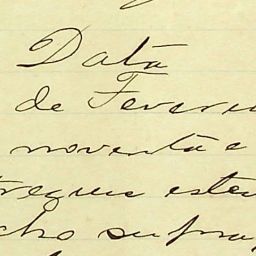 Datã
de Fevere
noventa e
tregue estes
cho supra,